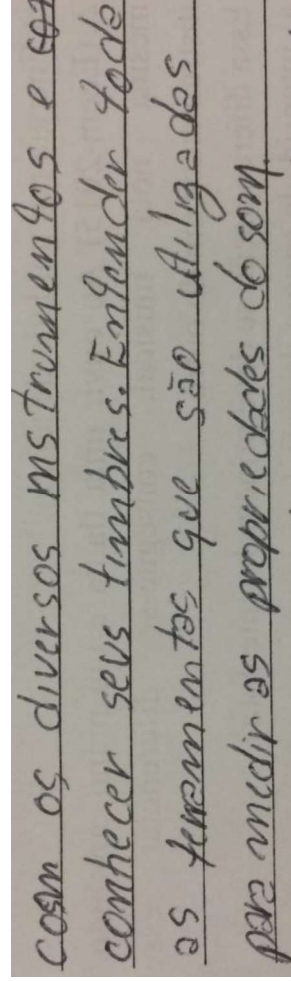 com os diversos instrumentos e
conhecer seus timbres. Entender toda
as feramentas que são utilizadas
para medir as propriedades do som.